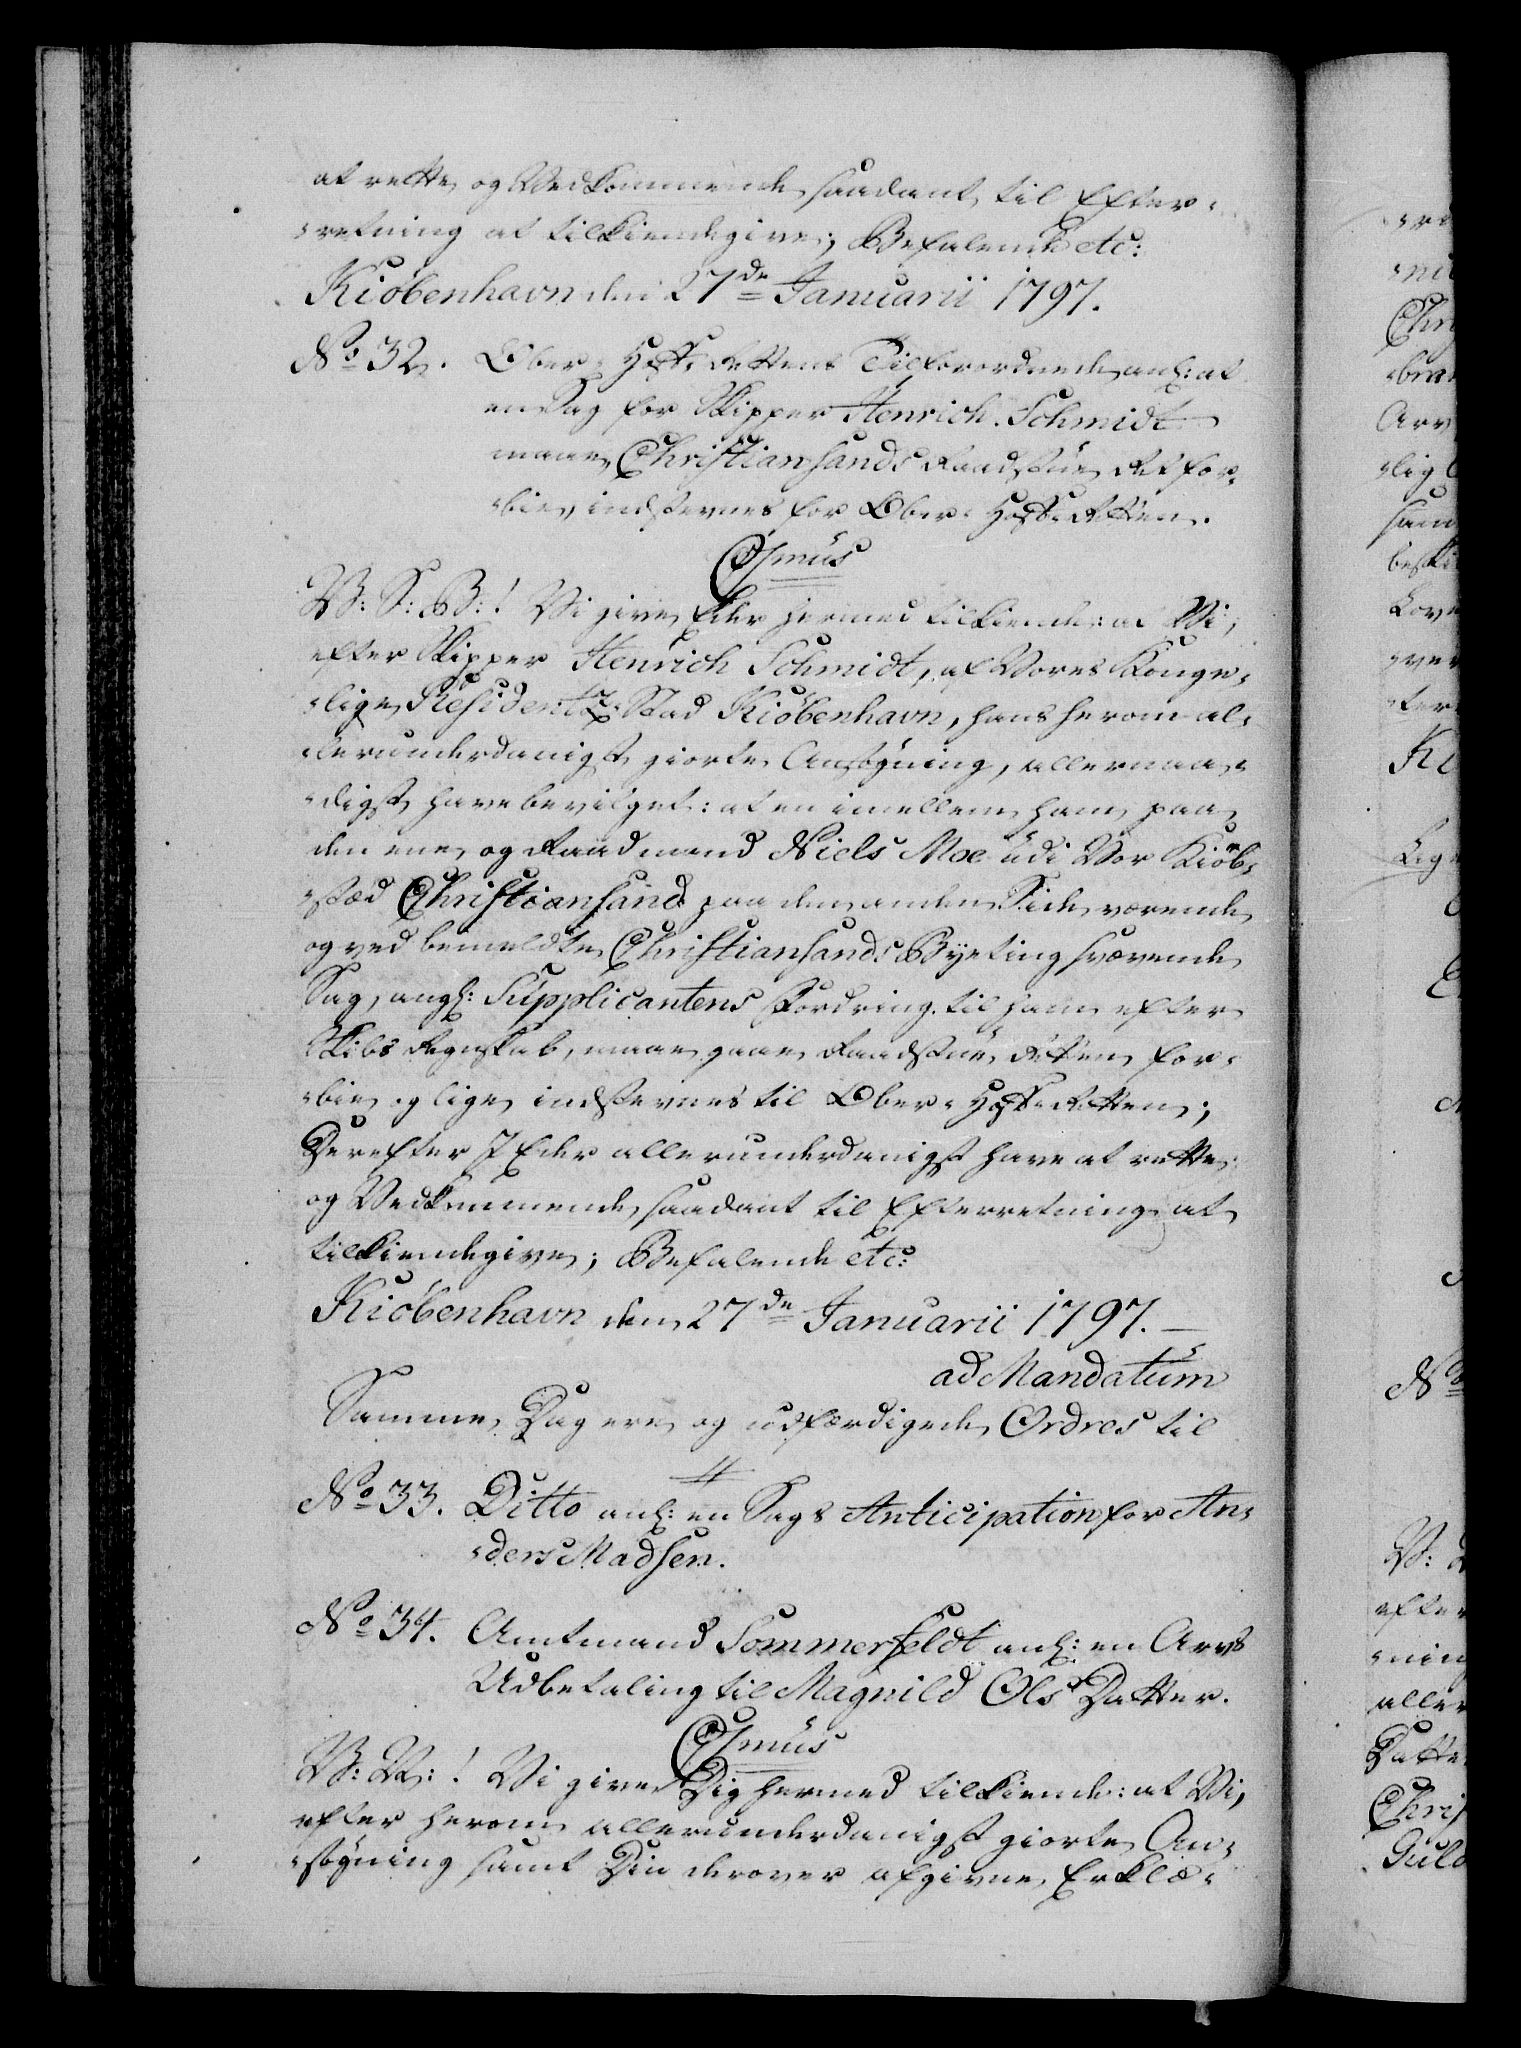 at rette, og Vedkommende saadant til Efter-
-retning at tilkiendegive; Befalende etc:
Kiöbenhavn den 27de Januarii 1797.
No 32. Ober-Hof-Rettens Tilforordnede anl: at
en Sag for Skipper Henrich Schmidt
maae Christiansands Raadstue Ret for-
-bie, indstevnes for Ober-Hof-Retten.
C7mus
V: S: B:! Vi give Eder hermed tilkiende: at Vi,
efter Skipper Henrich Schmidt, af Vores Konge-
-lige Residentz-Stad Kiöbenhavn, hans herom al-
-lerunderdanigst giorte Ansögning, allernaa-
-digst have bevilget: at en imellem ham paa
den ene, og Raadmand Niels Moe udi Vor Kiöb-
-stæd Christiansand paa den anden Side værende,
og ved bemeldte Christiansands Byeting svævende
Sag, angl: Supplicantens Fordring til ham efter
Skibs Regnskab, maae gaae Raadstue Retten for-
-bie og lige indstevnes til Ober-Hof-Retten;
Derefter I Eder allerunderdanigst have at rette,
og Vedkommende saadant til Efterretning at
tilkiendegive; Befalende etc:
Kiöbenhavn den 27de Januarii 1797.
ad Mandatum
Samme Dag ere og udfærdigede Ordres til
No 33. Ditto anl: en Sags Anticipation for An-
-ders Madsen.
No 34. Amtmand Sommerfeldt anl: en Arvs
Udbetaling til Magnild Ols Datter.
C7mus
V: V:! Vi give Dig hermed tilkiende: at Vi,
efter herom allerunderdanigst giorte An-
-søgning samt Din derover afgivne Erklæ-